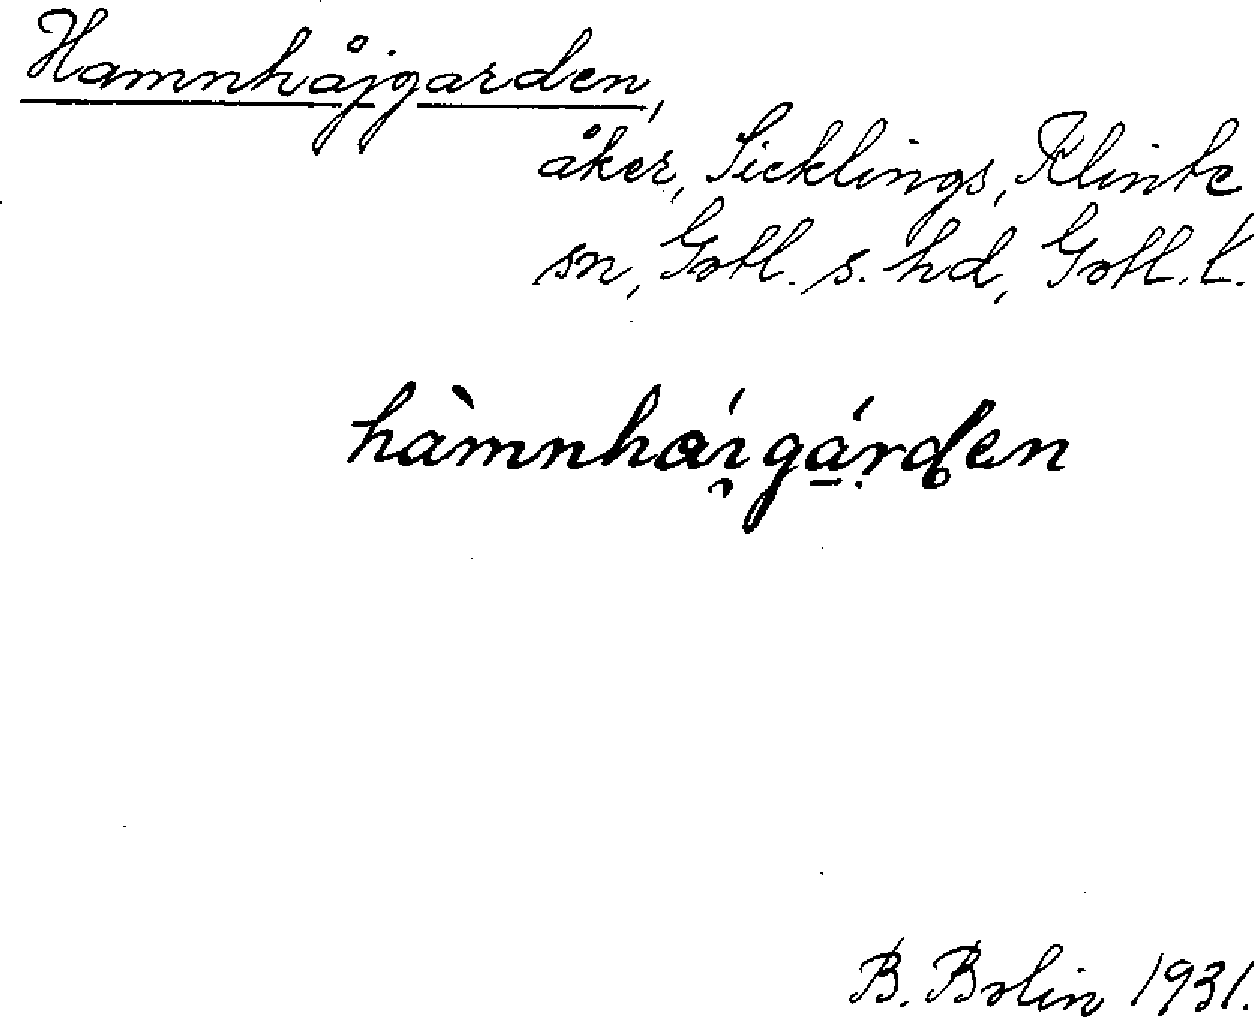 Hamnhåjgarden,
åker, Sicklings, Klinte
sn, Gotl. s. hd, Gotl. l.
hàmnháıgárden
B. Bolin 1931.